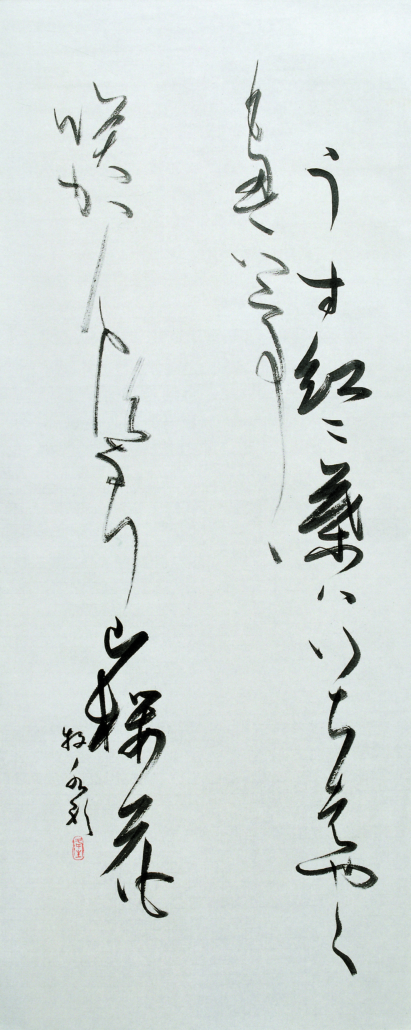 うす紅に葉はいちはやく
もえいでて
咲かんとすなり山櫻花
牧水